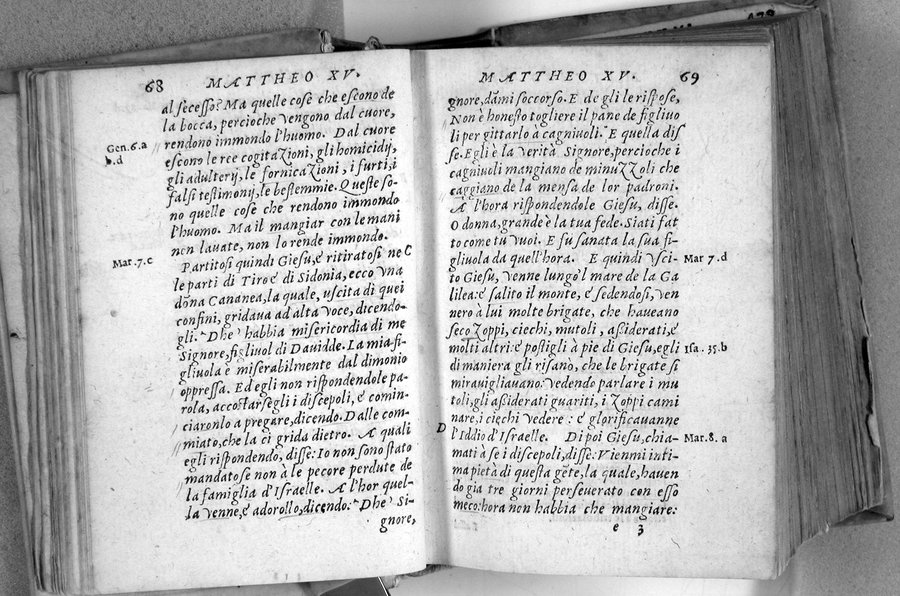 68 MATTHEO XV.
al secesso? Ma quelle cose che escono de
la bocca, percioche vengono dal cuore,
Gen.6.a rendono immondo l'huomo. Dal cuore
b.d escono le ree cogitazioni, gli homicidij,
gli adulterij, le fornicazioni, i furti, i
falsi testimonij, le bestemmie. Queste so-
no quelle cose che rendono immondo
l'huomo. Ma il mangiar con le mani
non lauate, non lo rende immondo.
Mar.7.c Partitosi quindi Giesu, e ritiratosi ne C
le parti di Tiro e di Sidonia, ecco vna
dōna Cananea, la quale, uscita di quei
confini, gridaua ad alta voce, dicendo-
gli. Dhe habbia misericordia di me
Signore, figliuol di Dauidde. La mia fi-
gliuola e miserabilmente dal dimonio
oppressa. Ed egli non rispondendole pa-
rola, accostarsegli i discepoli, e comin-
ciaronlo a pregare, dicendo. Dalle com-
miato, che la ci grida dietro. A quali
egli rispondendo, disse: Io non sono stato
mandato se non à le pecore perdute de
la famiglia d'Israelle. A l'hor quel-
la venne, e adorollo, dicendo. Dhe Si-
gnore,
MATTHEO XV. 69
gnore, dāmi soccorso. E de gli le rispose,
Non è honesto togliere il pane de figliuo
li per gittarlo a cagniuoli. E quella dis
se. Egli è la verità Signore, percioche i
cagniuoli mangiano de minuzzoli che
caggiano de la mensa de lor padroni.
A l'hora rispondendole Giesu, disse.
O donna, grande è la tua fede. Siati fat
to come tu vuoi. E fu sanata la sua fi-
gliuola da quell'hora. E quindi vsci-
to Giesu, venne lungo'l mare de la Ga Mar 7.d
lilea: e salito il monte, e sedendosi, ven
nero à lui molte brigate, che haueano
seco zoppi, ciechi, mutoli, assiderati, e
molti altri: e postigli à pie di Giesu, egli Isa. 35.b
di maniera gli risanò, che le brigate si
mirauigliauano: vedendo parlare i mu
toli, gli assiderati guariti, i zoppi cami
nare, i ciechi vedere : e glorificauanne
D l'Iddio d'Israelle. Dipoi Giesu, chia- Mar.8.a
mati à se i discepoli, disse: Vienmi inti-
ma pietà di questa gēte, la quale, hauen
do gia tre giorni perseuerato con esso
meco: hora non habbia che mangiare:
e 3